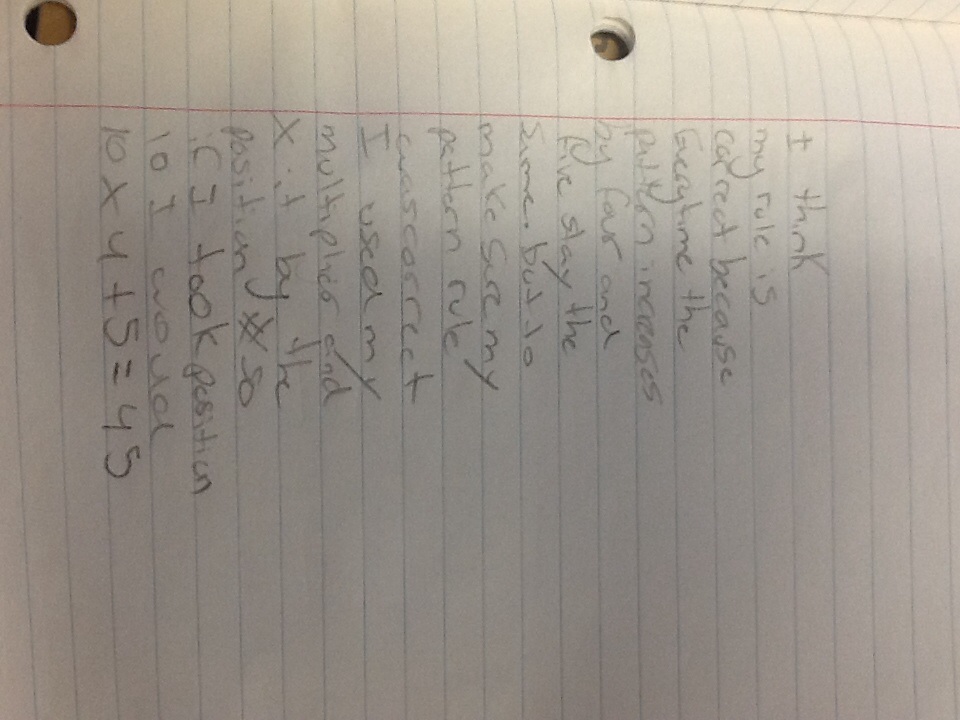 I think
my rule is
correct because
Everytime the
pattern increases
by four and
five stay the
same. but to
make sure my
pattern rule
was correct
I used my
multiplier and
X it by the
position # so
if I took position
10 I would
10 X 4 + 5 = 45